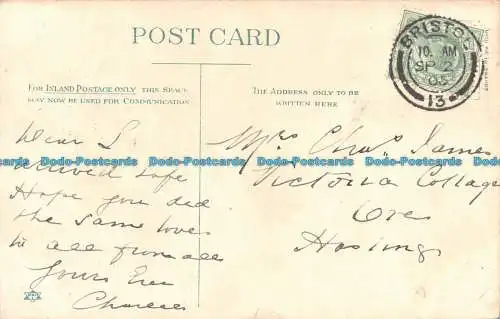 POST CARD
BRISTOL
10. AM
SP 2
05
13
FOR INLAND POSTAGE ONLY THIS SPACE
MAY NOW BE USED FOR COMMUNICATION
THE ADDRESS ONLY TO BE
WRITTEN HERE
Dear L
arrived safe
Hope you did
the same love
to all from all
Yours Ever
Charlie
Mrs Chas. James
Victoria Cottage
Ore
Hastings
Dodo-Postcards Dodo-Postcards Dodo-Postcards Dodo-Postcards
Dodo-Postcards Dodo-Postcards Dodo-Postcards Dodo-Postcards